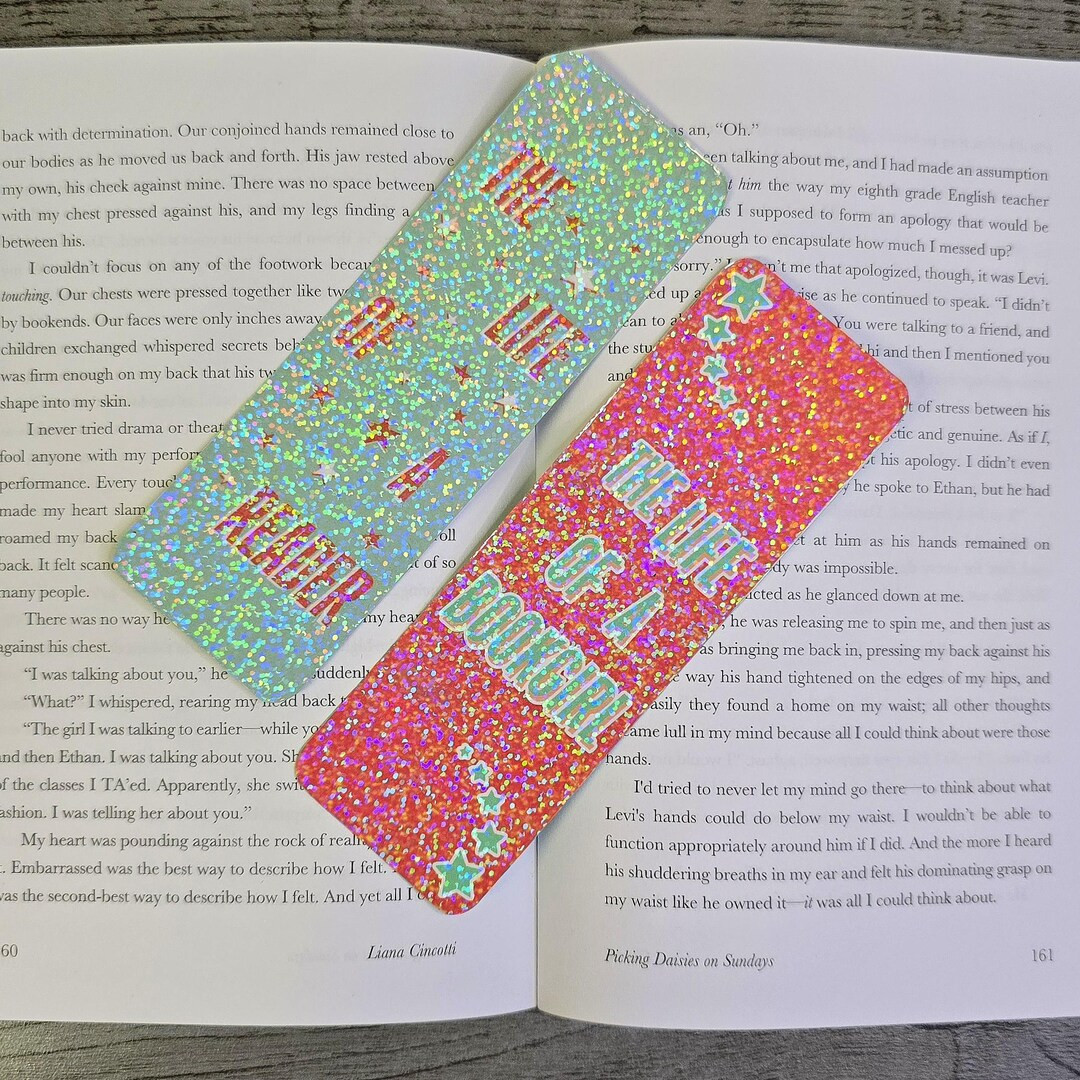 back with determination. Our conjoined hands remained close to
our bodies as he moved us back and forth. His jaw rested above
my own, his cheek against mine. There was no space between
with my chest pressed against his, and my legs finding a
between his.
I couldn't focus on any of the footwork
touching. Our chests were pressed together like
by bookends. Our faces were only inches away
children exchanged whispered secrets
was firm enough on my back that his
shape into my skin.
I never tried drama or
fool anyone with my
performance. Every
made my heart slam
roamed my back
back. It felt
many people.
There was no way he
my
against his chest.
"I was talking about you," he
"What?" I whispered, rearing my head back
"The girl I was talking to earlier—while
and then Ethan. I was talking about you.
of the classes I TA'ed. Apparently, she
fashion. I was telling her about you."
My heart was pounding against the rock of
Embarrassed was the best way to describe how I felt.
was the second-best way to describe how I felt. And yet all I
60
Liana Cincotti
THE
LIFE
OF
A
READER
THE LIFE
OF A
BOOKGIRL
as an, "Oh."
talking about me, and I had made an assumption
him the way my eighth grade English teacher
I supposed to form an apology that would be
enough to encapsulate how much I messed up?
sorry."
me that apologized, though, it was Levi.
up
as he continued to speak. "I didn't
to
You were talking to a friend, and
the
hi and then I mentioned you
of stress between his
and genuine. As if I,
his apology. I didn't even
he spoke to Ethan, but he had
at him as his hands remained on
was impossible.
as he glanced down at me.
he was releasing me to spin me, and then just as
bringing me back in, pressing my back against his
way his hand tightened on the edges of my hips, and
easily they found a home on my waist; all other thoughts
came lull in my mind because all I could think about were those
hands.
I'd tried to never let my mind go there—to think about what
Levi's hands could do below my waist. I wouldn't be able to
function appropriately around him if I did. And the more I heard
his shuddering breaths in my ear and felt his dominating grasp on
my waist like he owned it—it was all I could think about.
Picking Daisies on Sundays
161